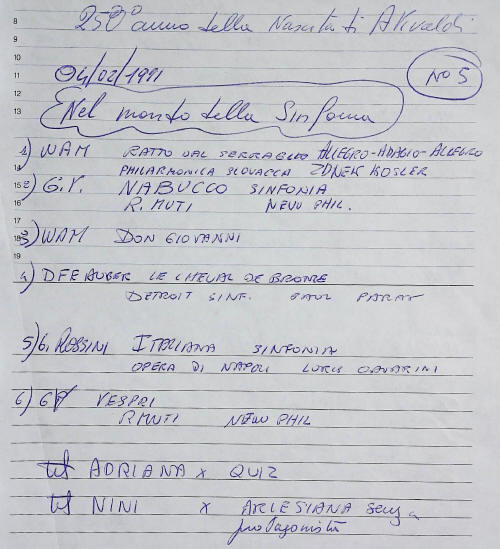 250° anno della Nascita di A Vivaldi
04/02/1991 N° 5
Nel mondo della Sinfonia
1) WAM RATTO DAL SERRAGLIO ALLEGRO-ADAGIO-ALLEGRO
PHILARMONICA SLOVACCA ZDNEK KOSLER
2) G.V. NABUCCO SINFONIA
R. MUTI NEW PHIL.
3) WAM DON GIOVANNI
4) DFE AUBER LE CHEVAL DE BRONZE
DETROIT SINF. PAUL PARAY
5) G. ROSSINI ITALIANA SINFONIA
OPERA DI NAPOLI
6) GV VESPRI
R MUTI NEW PHIL
tel ADRIANA x QUIZ
tel NINI x ARLESIANA senza
protagonista
8
9
10
11
12
13
14
15
16
17
18
19